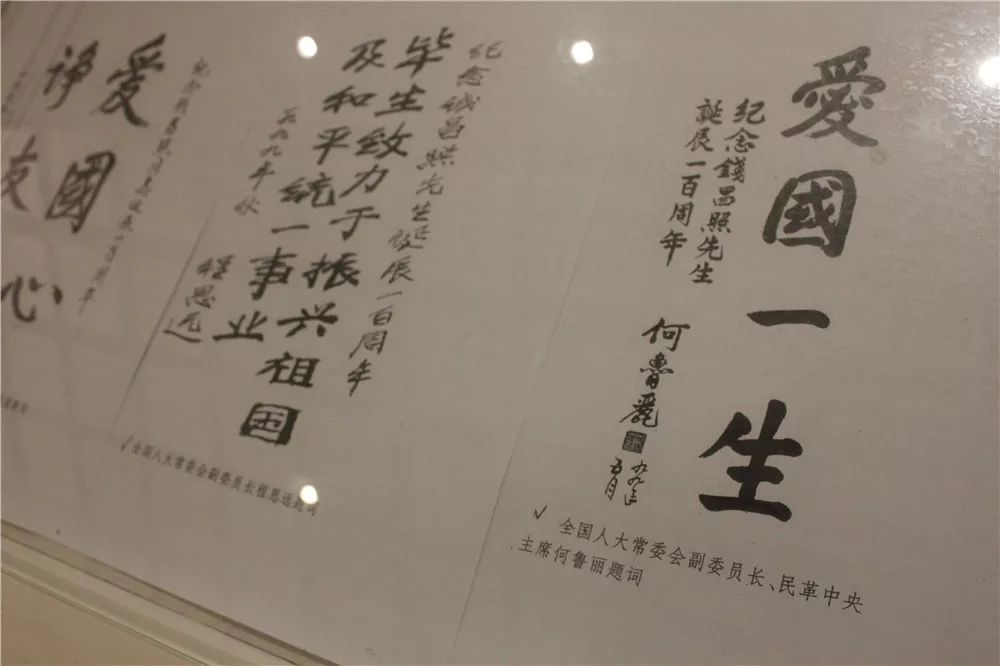 愛國一生
纪念錢昌照先生
誕辰一百周年
何魯麗
九九年
五月
✓ 全国人大常委会副委员长、民革中央
主席何鲁丽题词
纪念钱昌照先生诞辰一百周年
毕生致力于振兴祖国
及和平统一事业
一九九九年秋
程思远
✓ 全国人大常委会副委员长程思远题词
爱國心
诤友